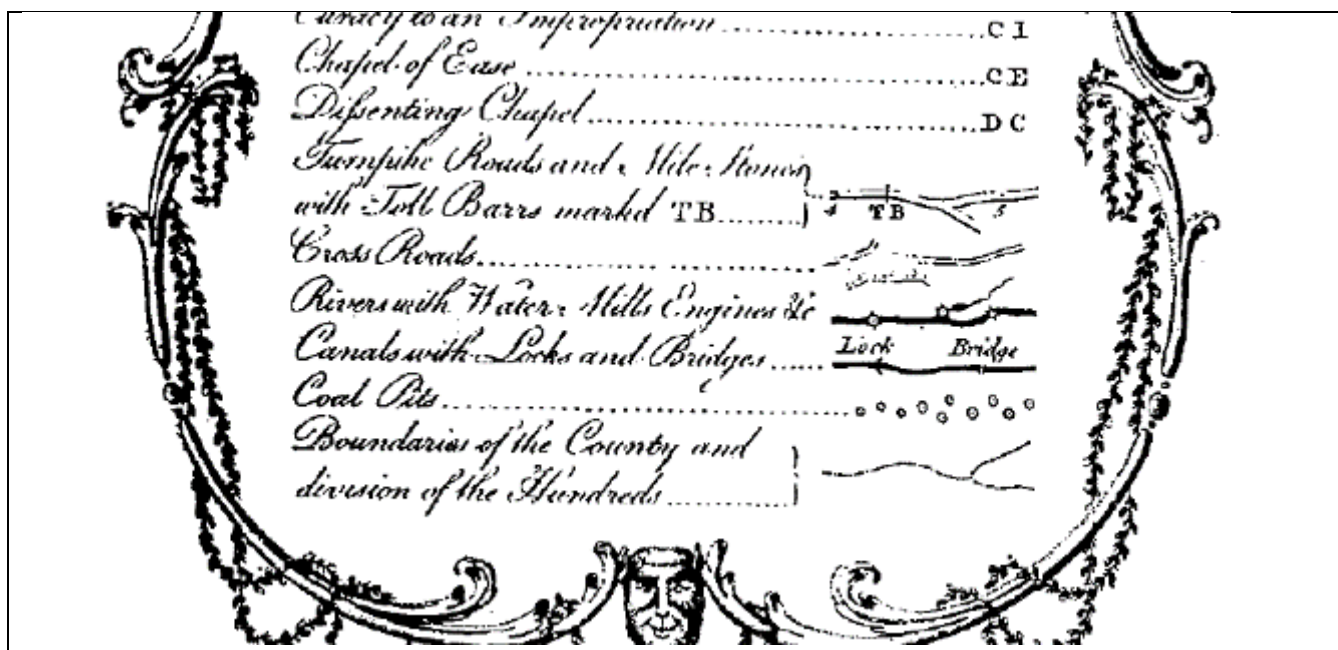 Curacy to an Impropriation ..... C I
Chapel of Ease ..... C E
Dissenting Chapel ..... D C
Turnpike Roads and Mile Stones
with Toll Barrs markd TB ..... 4 TB 5
Cross Roads .....
Rivers with Water Mills Engines &c
Canals with Locks and Bridges ..... Lock Bridge
Coal Pits .....
Boundaries of the County and
division of the Hundreds .....